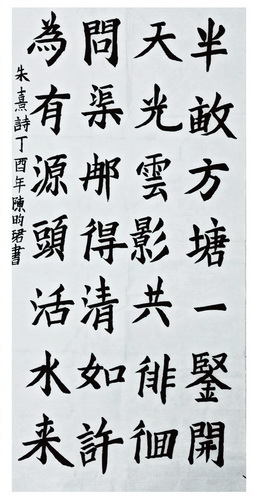 半畝方塘一鑒開
天光雲影共徘徊
問渠那得清如許
為有源頭活水来
朱熹詩丁酉年陳昀珺書